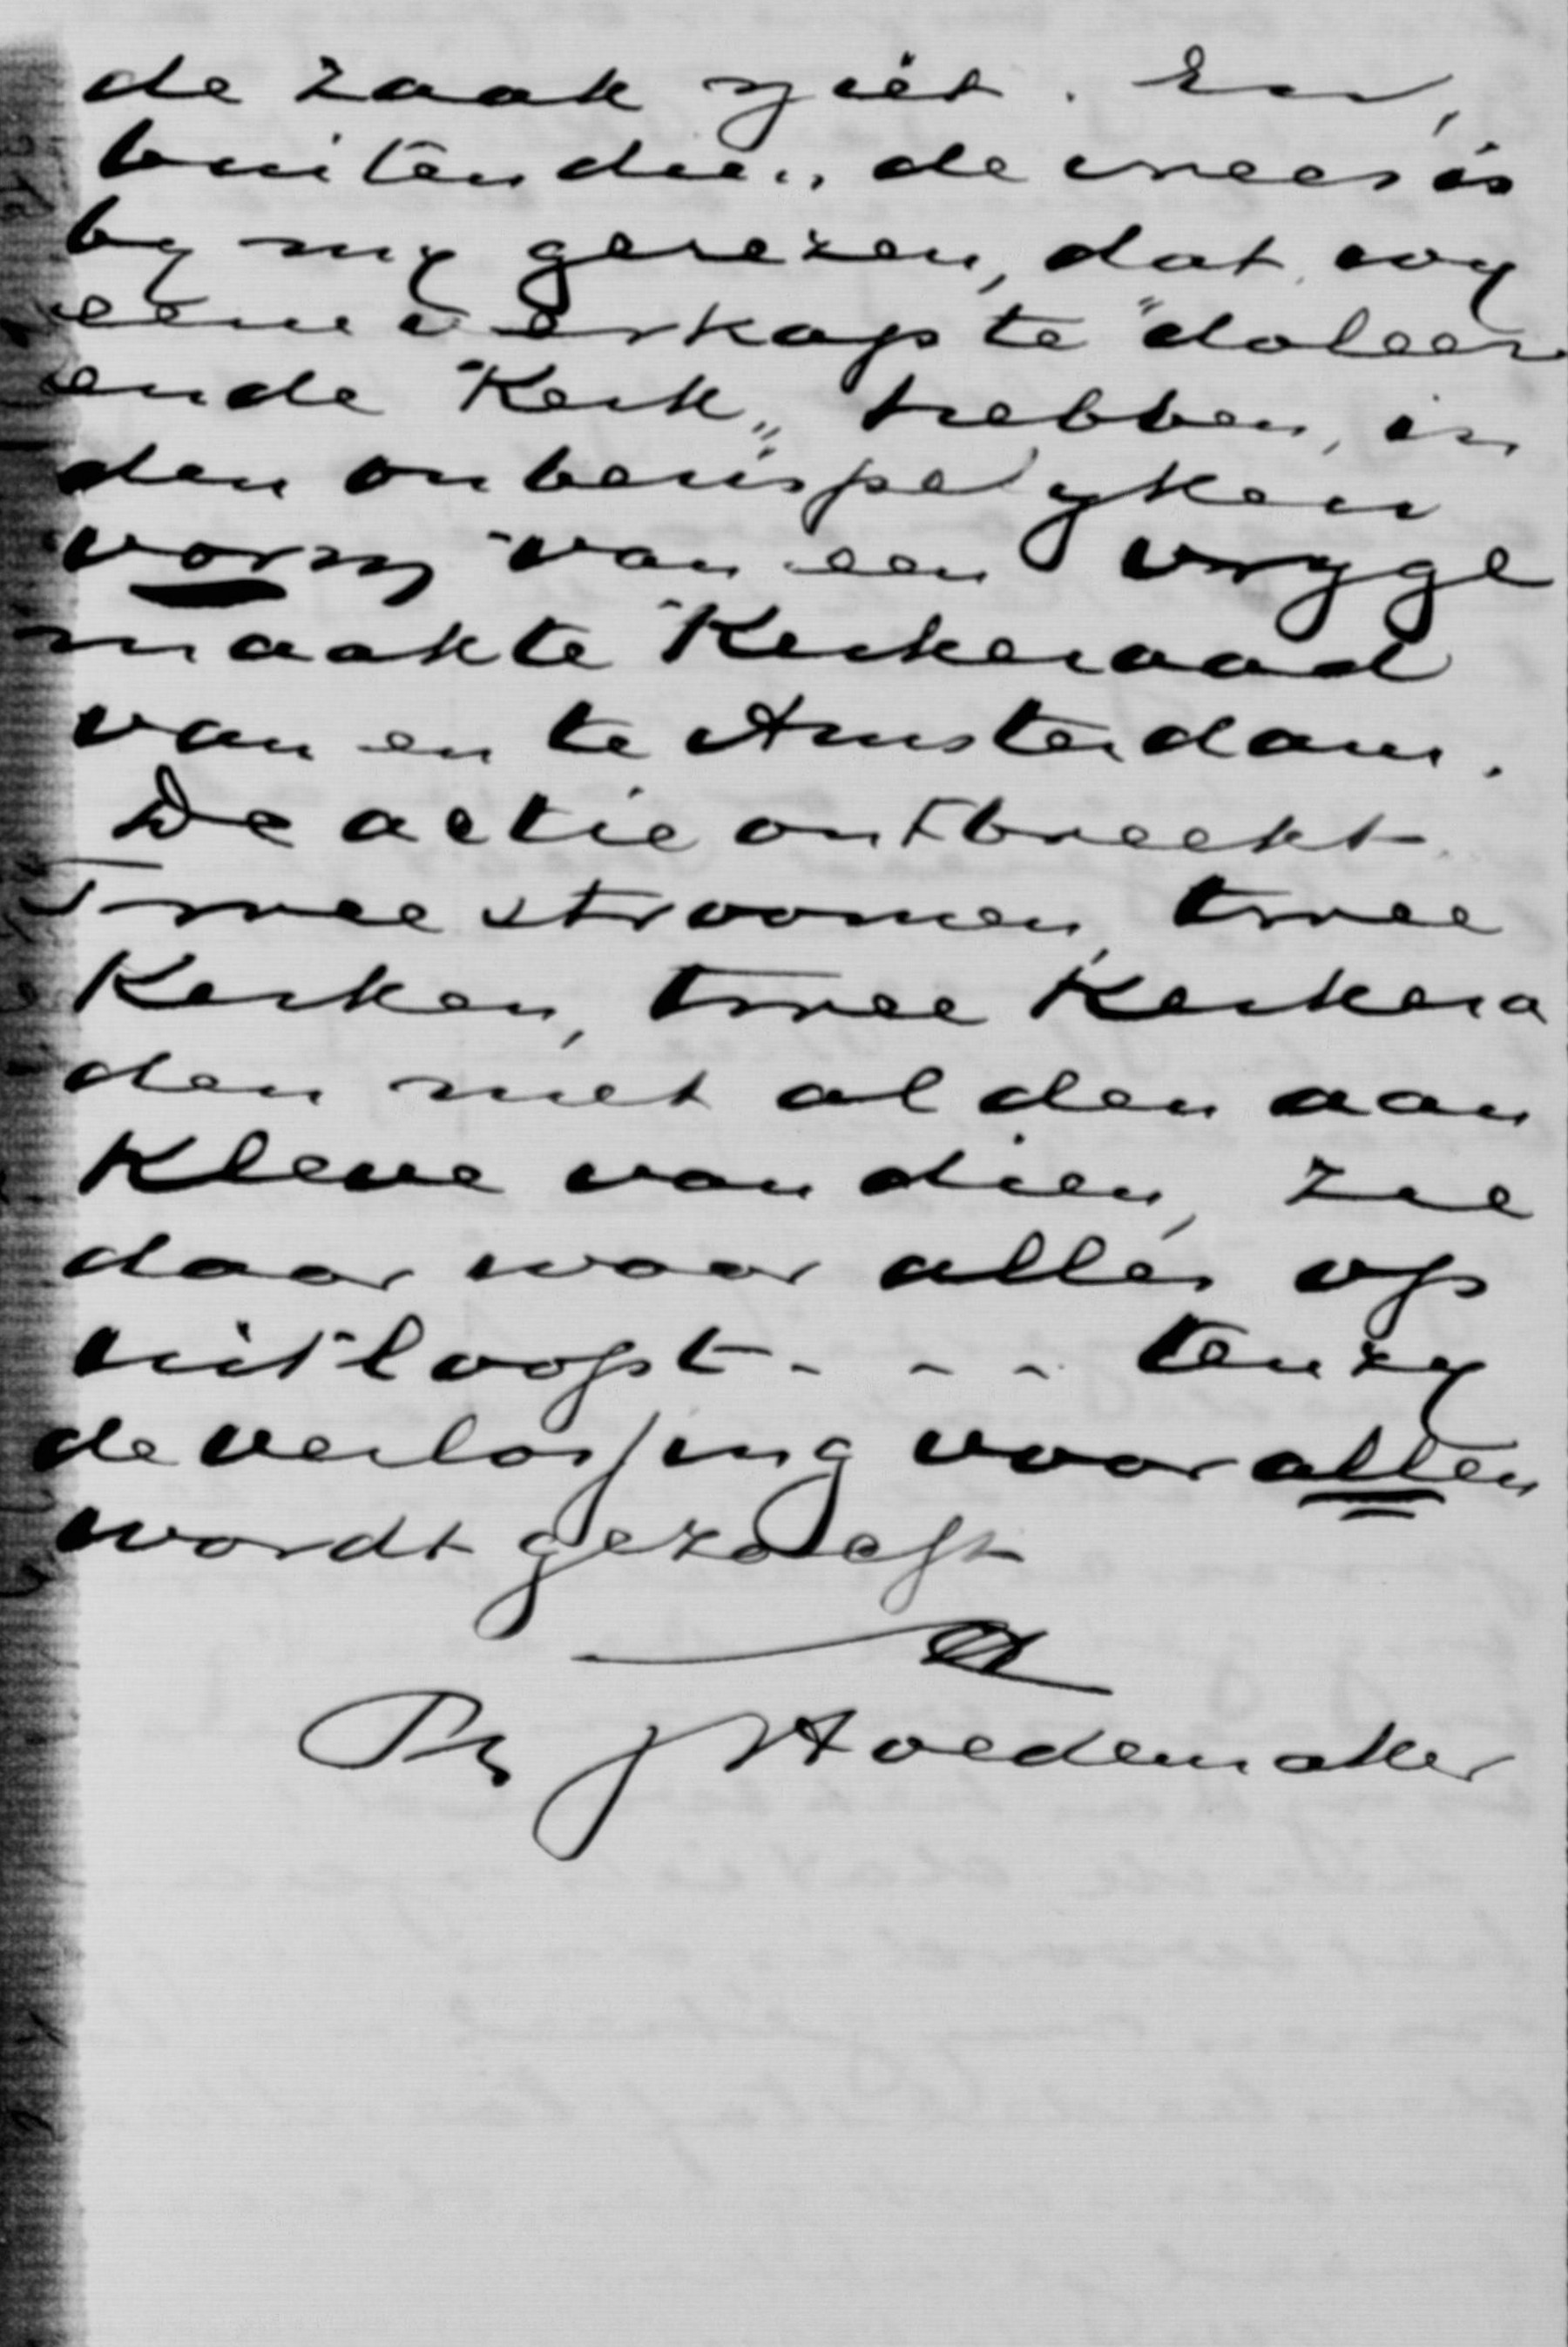 de zaak ziet. En,
buitendien, de vrees is
by my gerezen, dat wy
eene verkapte "doleer
ende Kerk„ hebben, in
den onberispelyken
vorm van een vryge
maakte Kerkeraad
van en te Amsterdam.
De actie ontbreekt.
Twee stroomen, twee
Kerken, twee Kerkera
den met al den aan
kleve van dien, zie
daar waar alles op
uitloopt - - - - tenzy
de verlossing voor allen
wordt gezocht
Ph J Hoedemaker